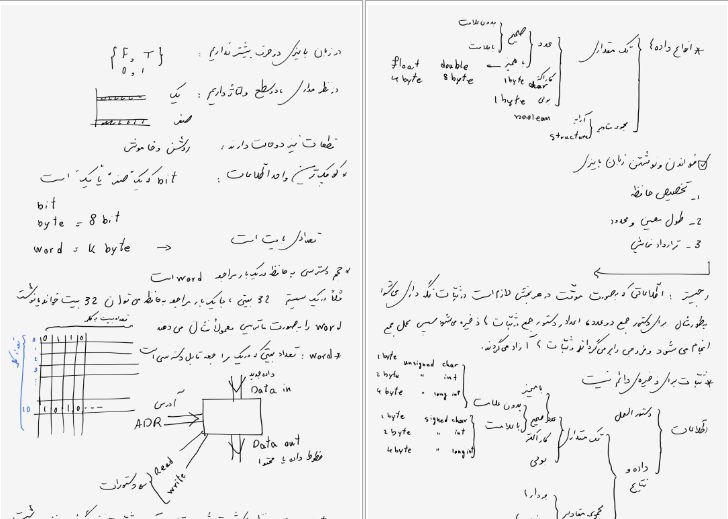 در زبان باینری دو حرف بیشتر نداریم : { F, T }
0, 1
در نظر مداری ، دو سطح ولتاژ داریم : یک
صفر
قطعات نیز دو حالت دارند : روشن و خاموش
* کوچکترین واحد اطلاعات : bit که یک "صفر" یا "یک" است
bit
byte = 8 bit
word = k byte → تعدادی بایت است
* حجم دسترسی به حافظه در یک بار مراجعه word است
مثلا در یک سیستم 32 بیتی ، با یک بار مراجعه به حافظه می توان 32 بیت خواند یا نوشت
word را به صورت ماتریس معمولا نشان می دهند
* word : تعداد بیتی که در یک مراجعه قابل دسترسی است
0 1 1 0
0
1
2
3
10 1 0 1 0 ---
آدرس
ADR
Data in
Data out
خطوط داده یا محتوا
Read
write
دستورات
* انواع داده
تک مقداری
عدد
صحیح
بدون علامت
باعلامت
ممیز
float double
4 byte 8 byte
کاراکتر 1 byte char
1 byte
boolean
آرایه
structure
خواندن و نوشتن زبان باینری
1_ تخصیص حافظه
2_ طول معین و محدود
3_ قرارداد نمایش
رجیستر : اطلاعاتی که به صورت موقت در هر بخش لازم است در ثبات نگه داری می شود
به طور مثال برای دستور جمع دو عدد ، اعداد و دستور جمع در ثبات ها ذخیره می شود سپس عمل جمع
انجام می شود و خروجی را بر می گرداند و ثبات ها آزاد می گردند.
* ثبات برای ذخیره ی دائم نیست
اطلاعات
دستورالعمل
داده و نتایج
تک مقداری
عدد
ممیز
صحیح
بدون علامت
باعلامت
1 byte unsigned char
2 byte " int
4 byte " long int
1 byte signed char
2 byte " int
4 byte " long int
کاراکتر
بولی